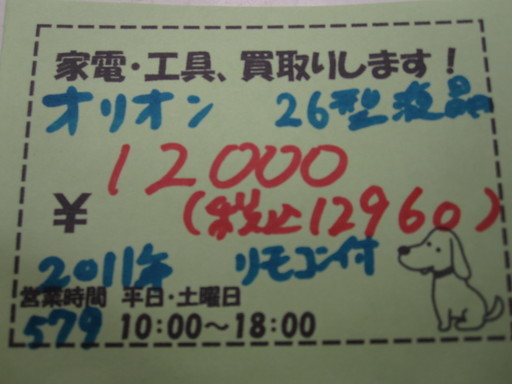 家電・工具、買取りします！
オリオン 26型液晶
12000
¥ (税込12960)
2011年 リモコン付
営業時間 平日・土曜日
579 10:00～18:00